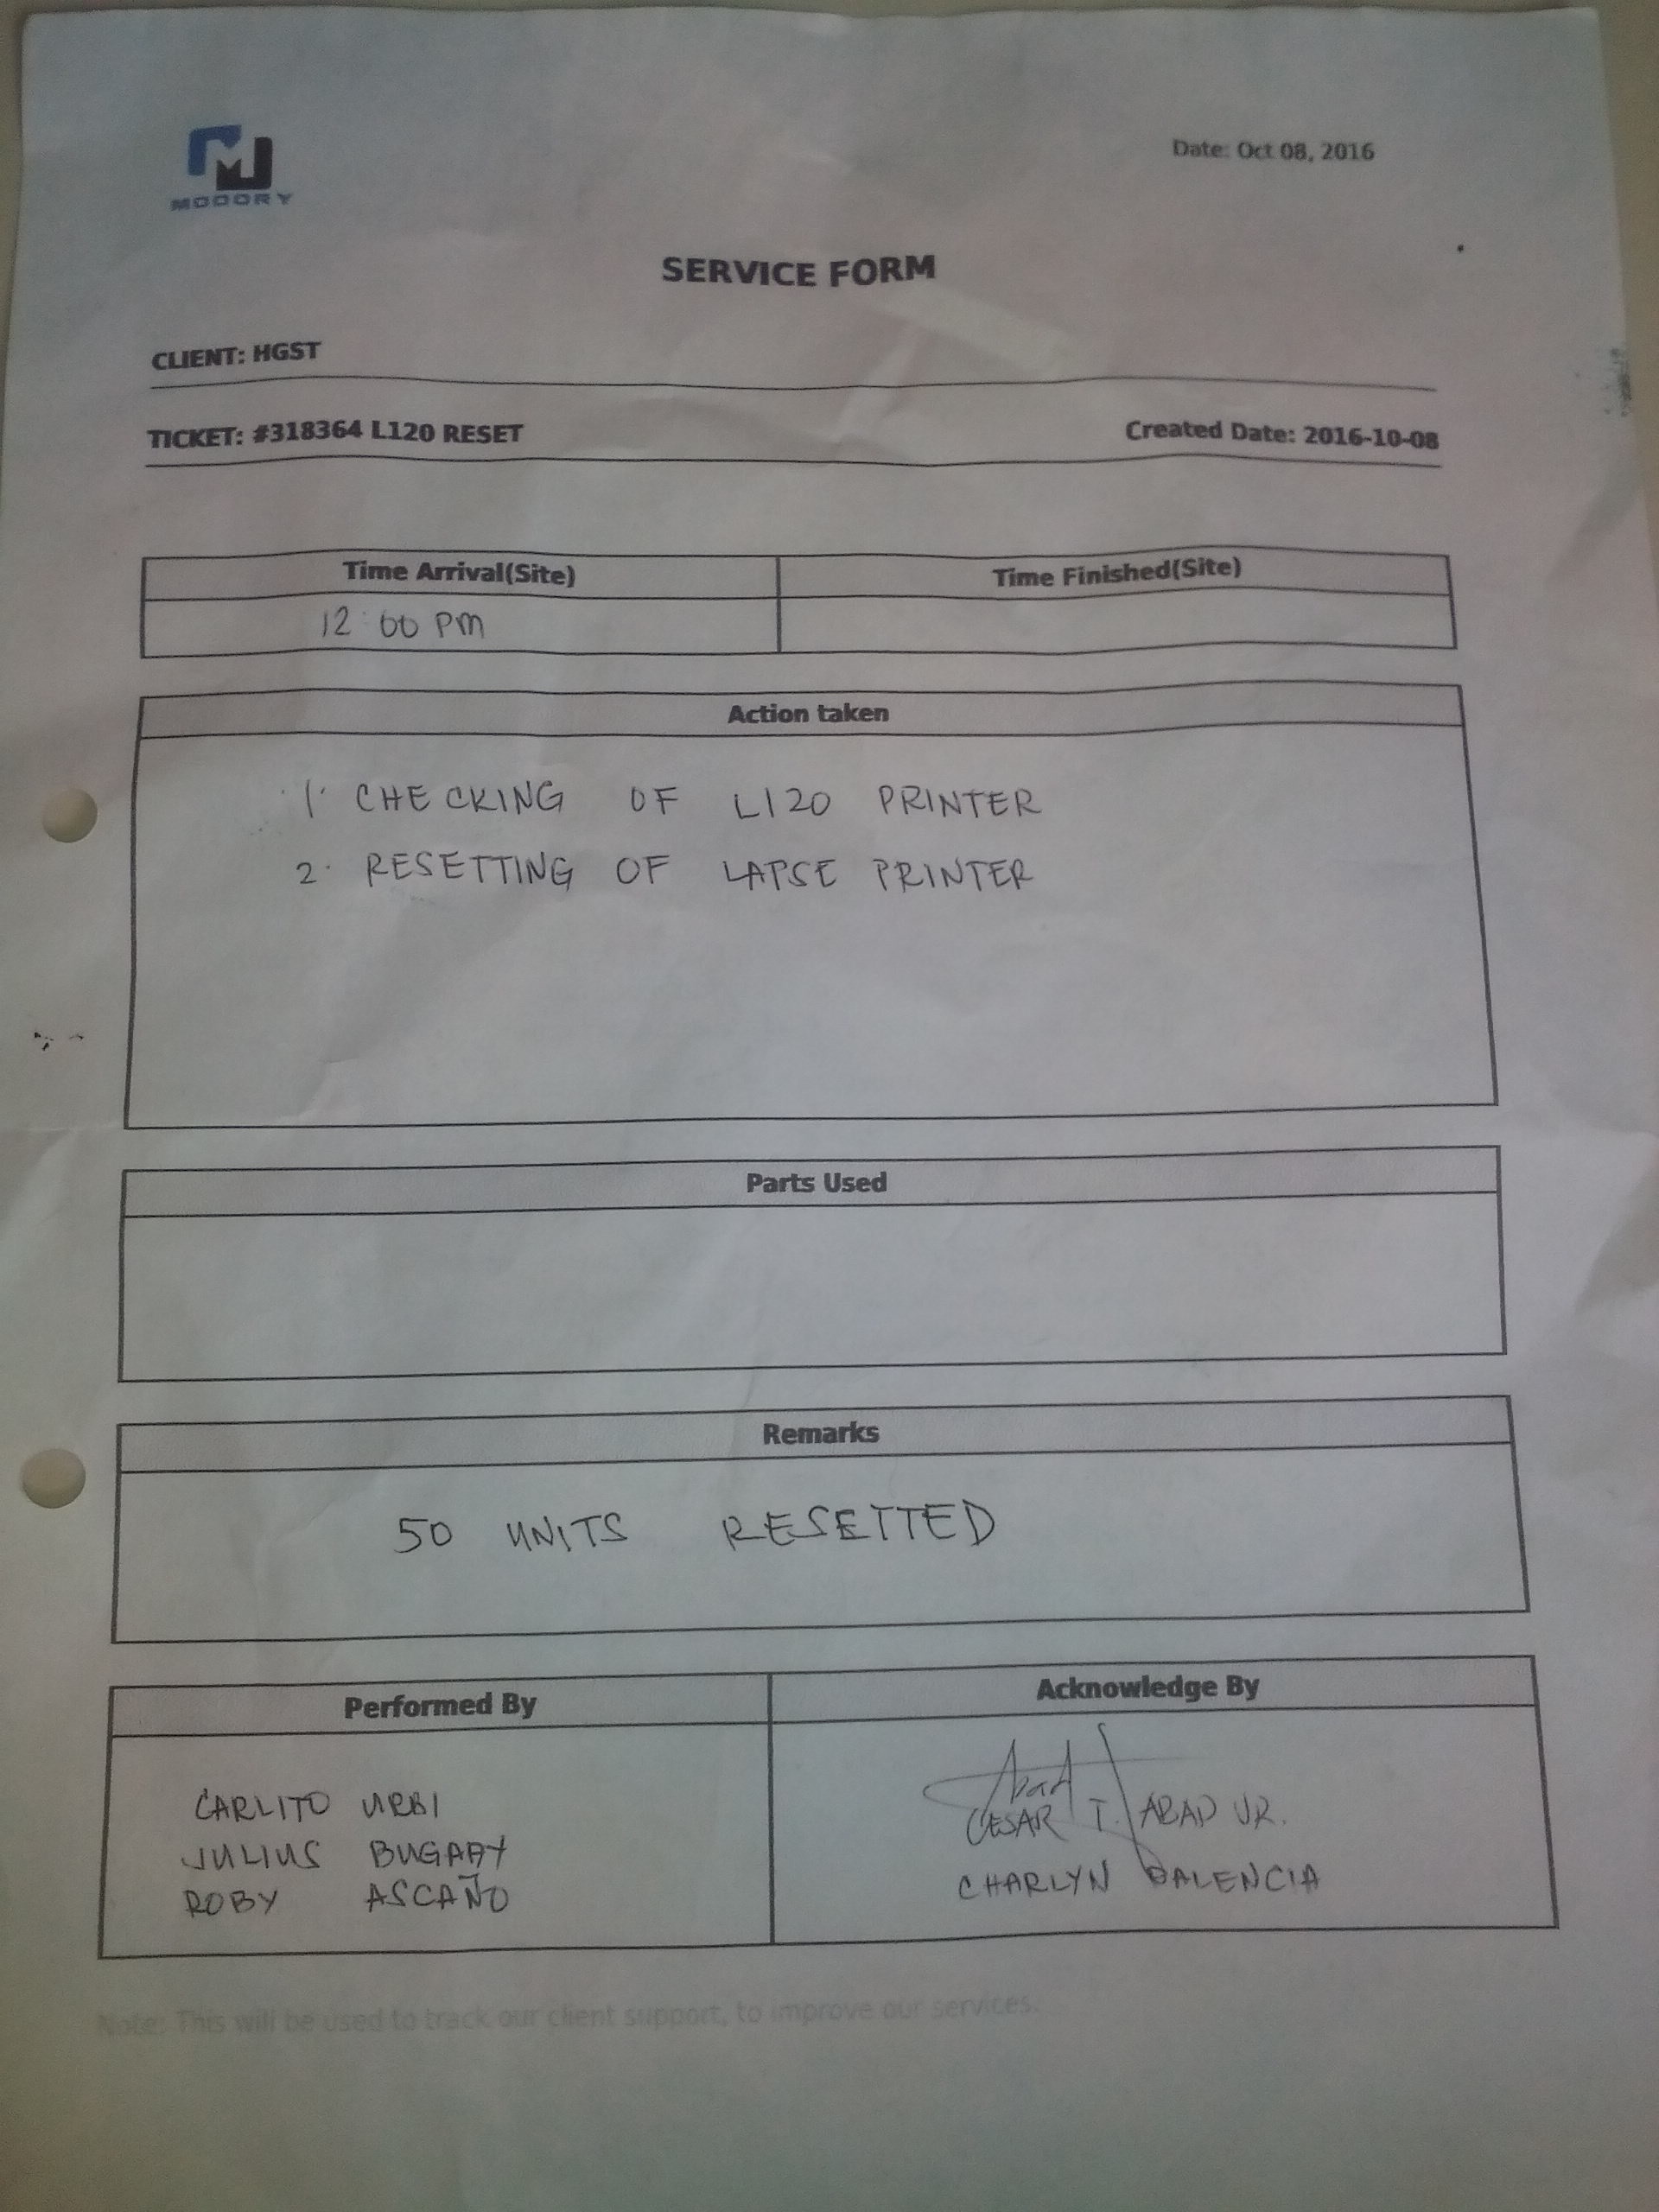 MODORY
Date: Oct 08, 2016
SERVICE FORM
CLIENT: HGST
TICKET: #318364 L120 RESET Created Date: 2016-10-08
Time Arrival(Site) Time Finished(Site)
12:00 PM
Action taken
1. CHECKING OF L120 PRINTER
2. RESETTING OF LAPSE PRINTER
Parts Used
Remarks
50 UNITS RESETTED
Performed By Acknowledge By
Abad
CARLITO URBI CESAR T. ABAD JR.
JULIUS
ROBY ASCAÑO CHARLYN
Note: This will be used to track our client support, to improve our services.